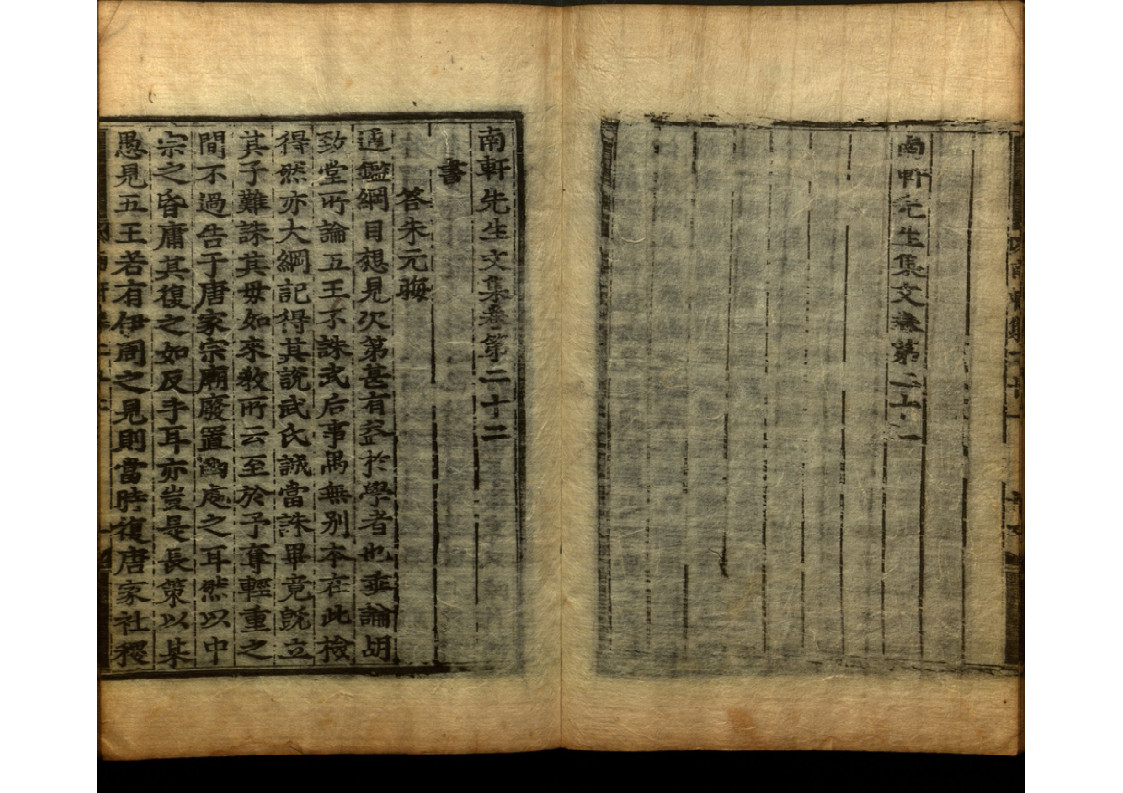 南軒先生集文卷第二十一
南軒先生文集卷第二十二
書
答朱元晦
通鑑綱目想見次第甚有益於學者也垂論胡
致堂所論五王不誅武后事偶無别本在此檢
得然亦大綱記得其說武氏誠當誅畢竟旣立
其子難誅其毋如來教所云至於予奪輕重之
間不過告于唐家宗廟廢置幽處之耳然以中
宗之昏庸其復之如反手耳亦豈是長策以某
愚見五王若有伊周之見則當時復唐家社稷